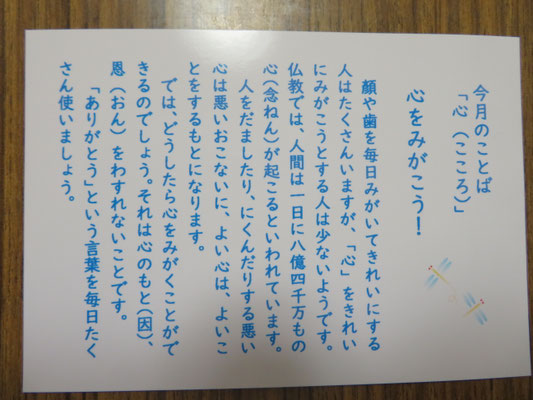 今月のことば
「心（こころ）」
心をみがこう！
顔や歯を毎日みがいてきれいにする
人はたくさんいますが、「心」をきれい
にみがこうとする人は少ないようです。
仏教では、人間は一日に八億四千万もの
心（念ねん）が起こるといわれています。
人をだましたり、にくんだりする悪い
心は悪いおこないに、よい心は、よいこ
とをするもとになります。
では、どうしたら心をみがくことがで
きるのでしょう。それは心のもと（因）、
恩（おん）をわすれないことです。
「ありがとう」という言葉を毎日たく
さん使いましょう。